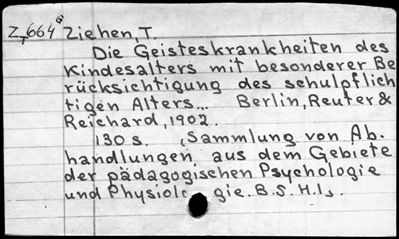 Z,664 G Ziehen, T.
Die Geisteskrankheiten des
Kindesalters mit besonderer Be
rücksichtigung des schulpflich
tigen Alters... Berlin, Reuter &
Reichard, 1902.
130 s. (Sammlung von Ab.
handlungen aus dem Gebiete
der pädagogischen Psychologie
und Physiologie. B.5. H.1).